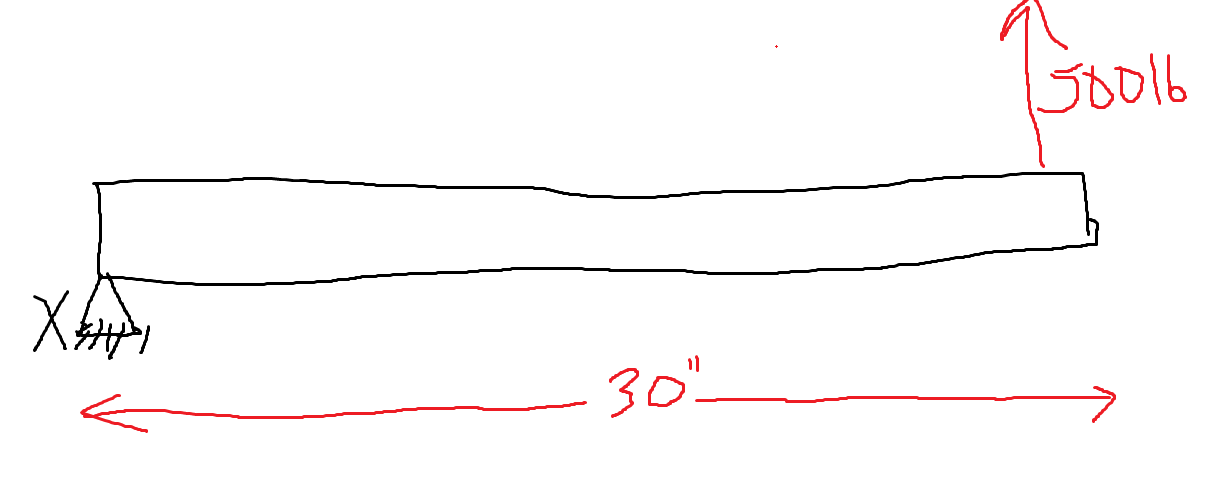 500lb
X
30"